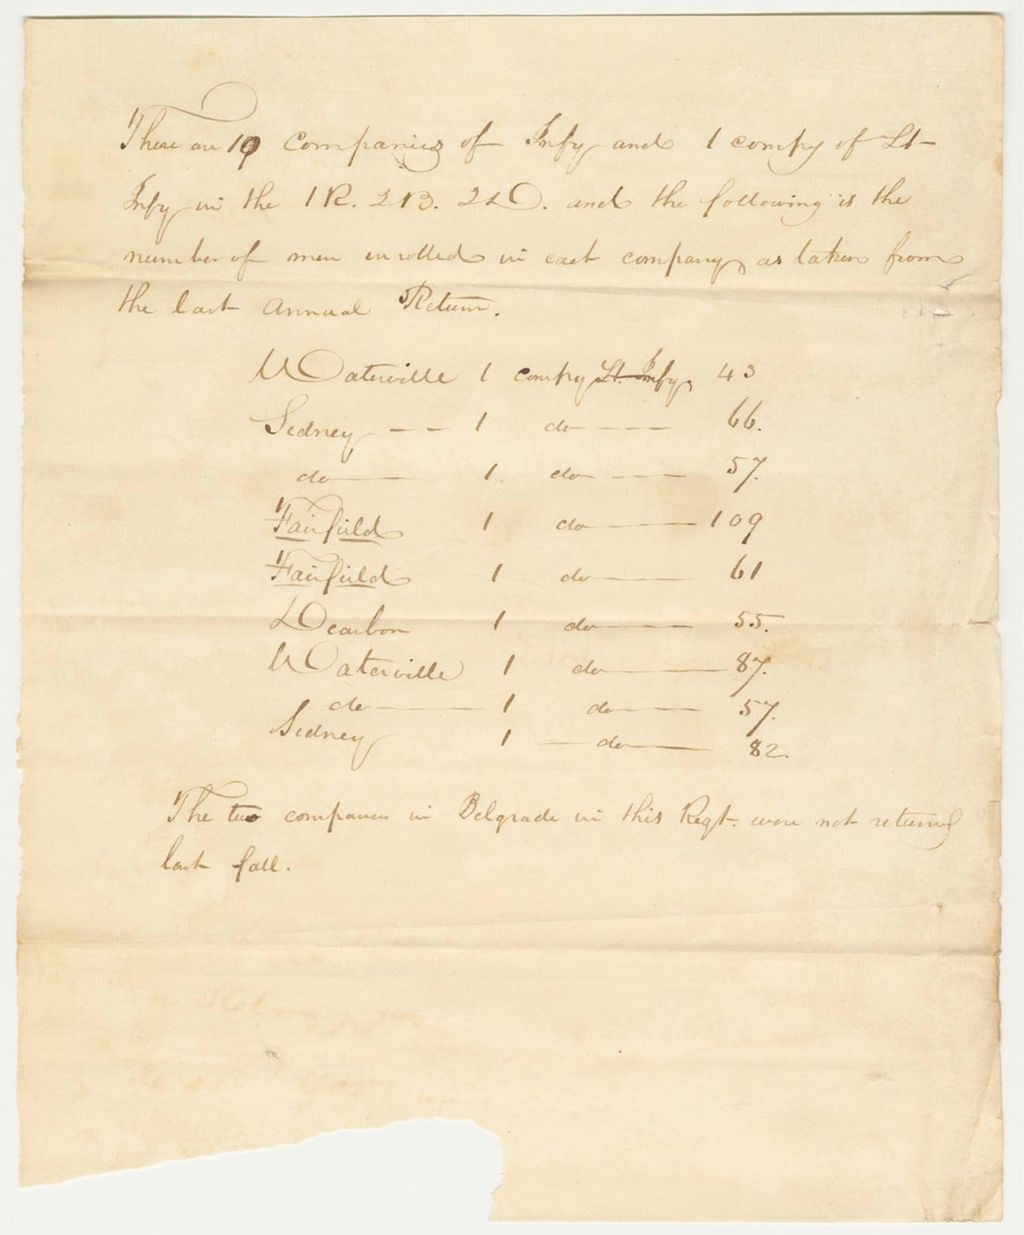 There are 10 companies of Infy and 1 compy of Lt
Infy in the 1 R. 2 B. 2 D. and the following is the
number of men enrolled in each company as taken from
the last annual Return.
Waterville 1 compy Lt. Infy 43
Sidney — — 1 do — — 66.
do — 1. do — — 57.
Fairfield 1 do — 109
Fairfield 1 do — 61
Dearbon 1 do — 55.
Waterville 1 do — 87.
do — 1 do — 57.
Sidney 1 — do — 82.
The two companies in Belgrade in this Regt. were not returned
last fall.